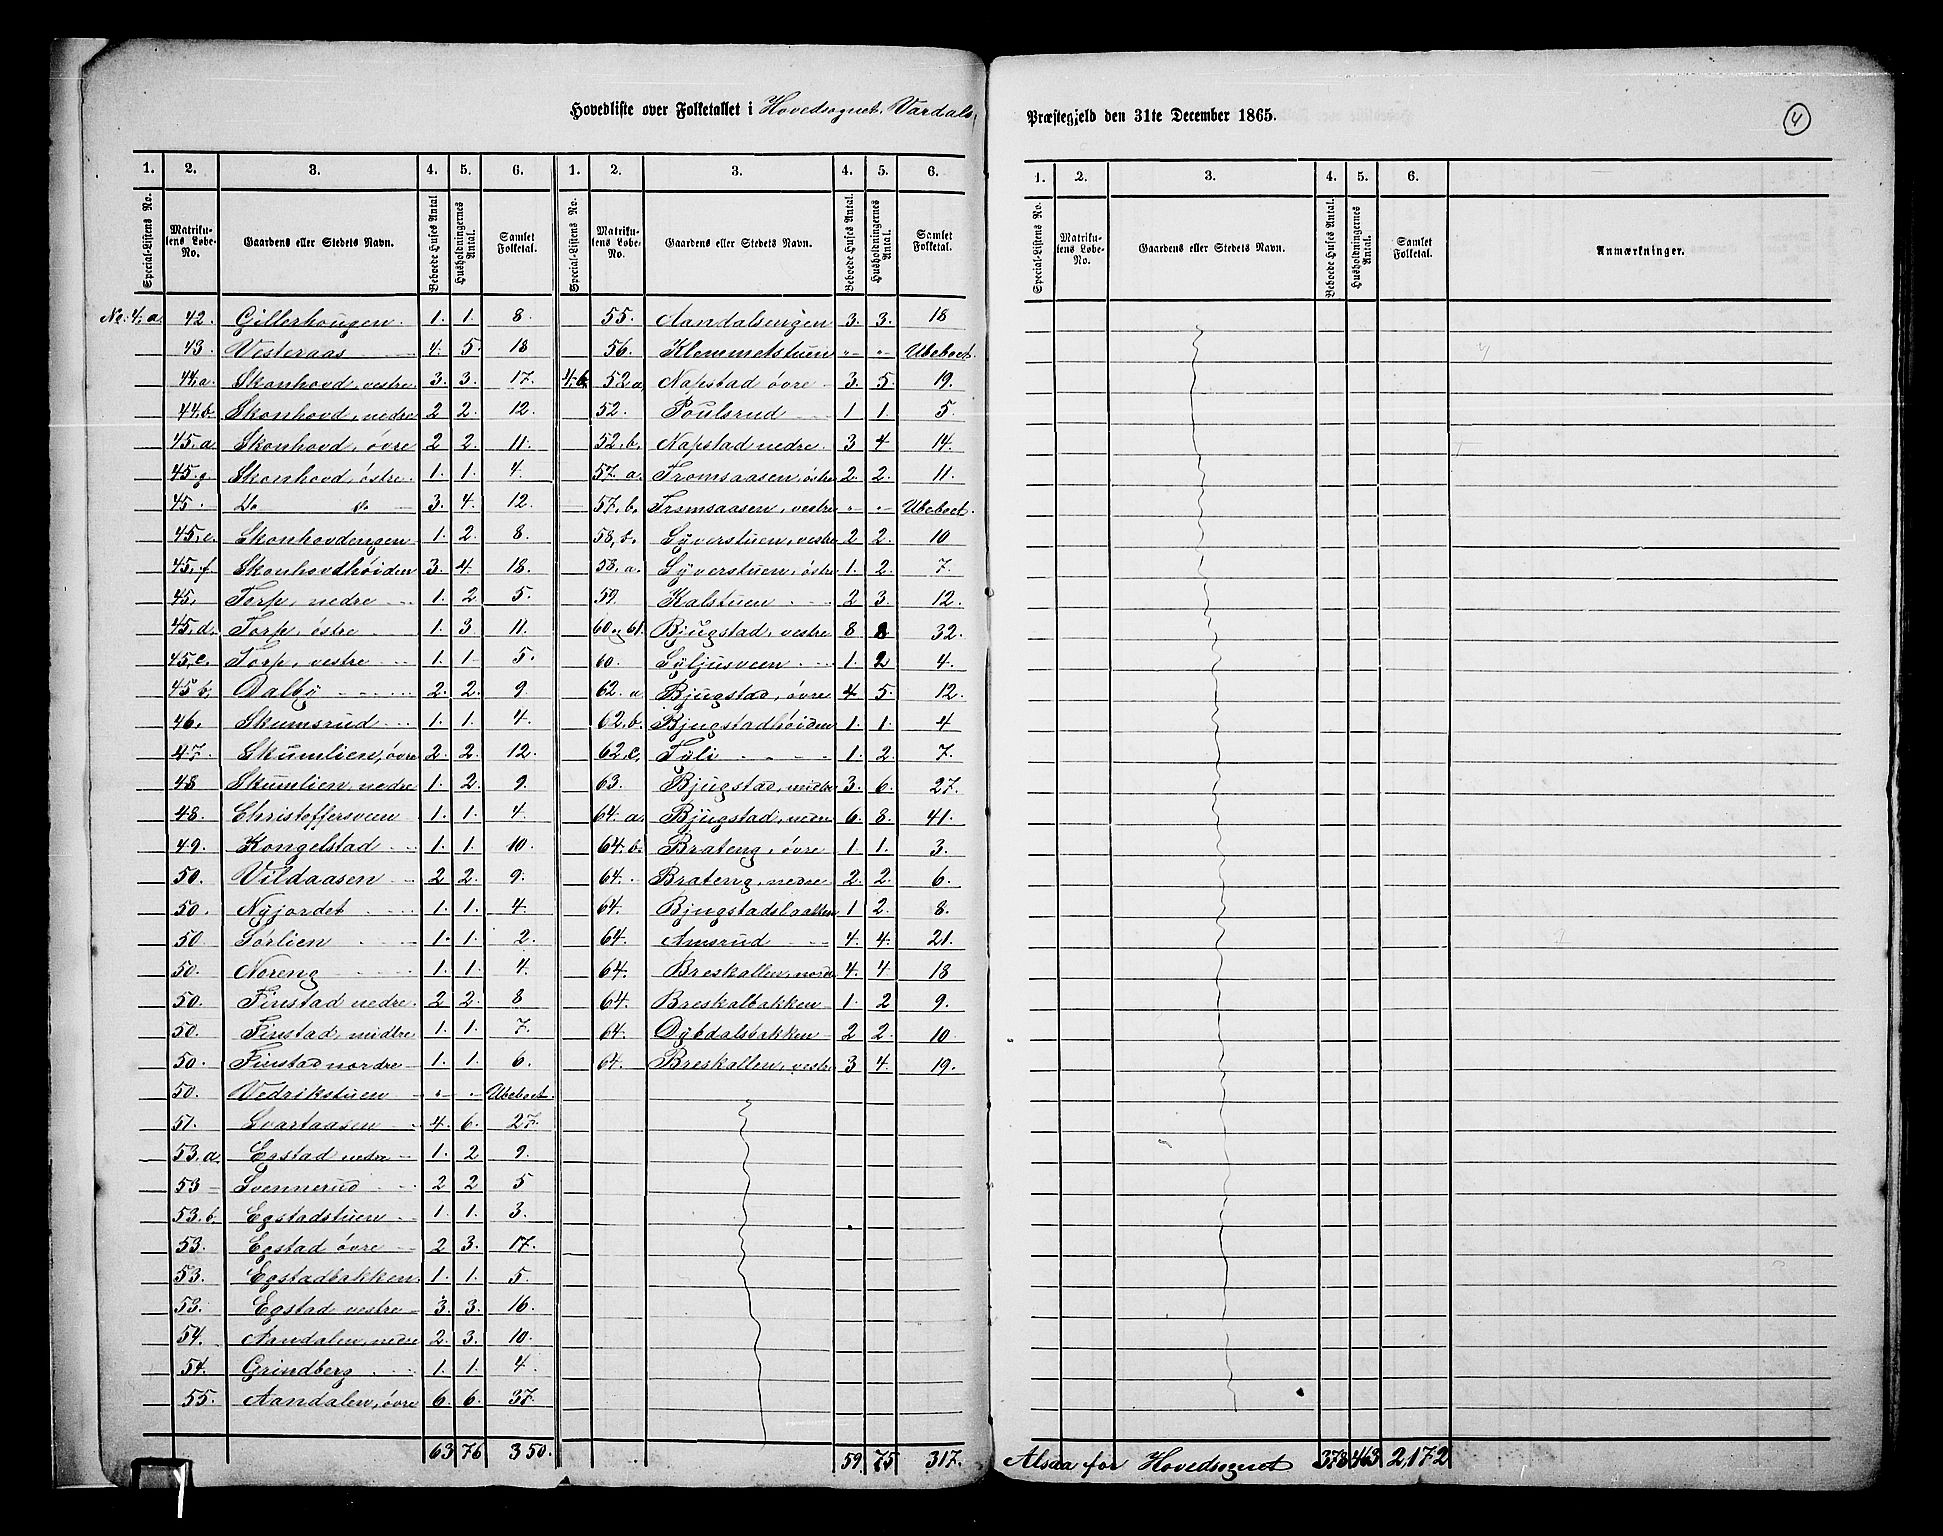 Hovedliste over Folketallet i Hovedsognet. Vardals Præstegjeld den 31te December 1865.
4
1. 2. 3. 4. 5. 6. 1. 2. 3. 4. 5. 6.
Special-Listens No. Matrikulens Løbe-No. Gaardens eller Stedets Navn. Beboede Huses Antal. Husholdningernes Antal. Samlet Folketal. Special-Listens No. Matrikulens Løbe-No. Gaardens eller Stedets Navn. Beboede Huses Antal. Husholdningernes Antal. Samlet Folketal.
No. 4, a. 42. Gillerhougen. 1. 1. 8.
43. Vesteraas 4. 5. 18
44, a. Skonhovd, vestre 3. 3. 17.
44, b. Skonhovd, nedre 2 2. 12.
45, a. Skonhovd, övre 2 2. 11.
45, g. Skonhovd, östre 1. 1. 4.
45. Do do 3. 4. 12.
45, e. Skonhovdengen 1. 2. 8.
45, f. Skonhovdhöiden 3. 4. 18.
45, Torp, nedre 1. 2 5.
45, d. Torp, östre 1. 3 11.
45, c. Torp, vestre 1. 1. 5.
45, b, Dalby 2. 2. 9
46. Skumsrud 1. 1. 4.
47. Skumlien, övre 2. 2. 12.
48 Skumlien, nedre 1. 2. 9.
48. Christoffersveen 1. 1. 4.
49. Kongelstad 1. 1. 10.
50. Vildaasen 2 2. 9.
50. Nyjordet 1. 1. 4.
50 Sörlien 1. 1. 2.
50. Noreng 1. 1. 4.
50. Finstad nedre 2 2. 8
50. Finstad, midtre 1. 1. 7.
50. Finstad nordre 1. 1. 6.
50. Vedrikstuen „ „ Ubeboet.
51. Svartaasen 4. 6. 27.
53, a. Egstad nedre 1. 2 9.
53 Svennerud 2 2 5
53. b. Egstadstuen 1. 1. 3.
53. Egstad övre 2 3. 17.
53. Egstadbakken. 1. 1. 5.
53. Egstad vestre 3. 3. 16.
54. Aandalen, nedre 2. 3. 10.
54. Grindberg 1. 1. 4.
55. Aandalen, övre 6. 6. 37.
63 76 350.
55. Aandalsengen 3. 3. 18
56. Klemmetstuen „ „ Ubeboet.
4. b. 52, a Napstad övre 3. 5. 19.
52. Poulsrud 1 1. 5.
52, b. Napstad nedre. 3 4 14.
57. a. Tromsaasen, östre 2 2. 11.
57, b. Tromsaasen, vestre „ „ Ubeboet.
58, b. Syverstuen, vestre 2 2. 10
58, a. Syverstuen, östre 1. 2. 7.
59. Kalstuen 2 3. 12.
60 og 61. Bjugstad, vestre 8 8 32.
60. Syljusveen 1. 2 4.
62. a Bjugstad, övre 4 5. 12.
62. b. Bjugstadhöiden 1. 1. 4
62. c. Syli 1. 2. 7.
63. Bjugstad, midtre 3. 6. 27.
64. a. Bjugstad, nedre 6. 8. 41.
64, b. Brateng, övre 1 1. 3.
64. Brateng, nedre 2. 2. 6.
64. Bjugstadslaatten 1 2. 8.
64. Amsrud 4. 4. 21.
64. Breskallen, nordre 4. 4 18
64. Breskalbakken 1. 2 9.
64. Dybdalsbakken 2 2. 10
64. Breskallen, vestre 3 4. 19.
59. 75 317.
1. 2. 3. 4. 5. 6.
Special-Listens No. Matrikulens Løbe-No. Gaardens eller Stedets Navn. Beboede Huses Antal. Husholdningernes Antal. Samlet Folketal. Anmærkninger.
Alsaa for Hovedsognet 378 463 2,172